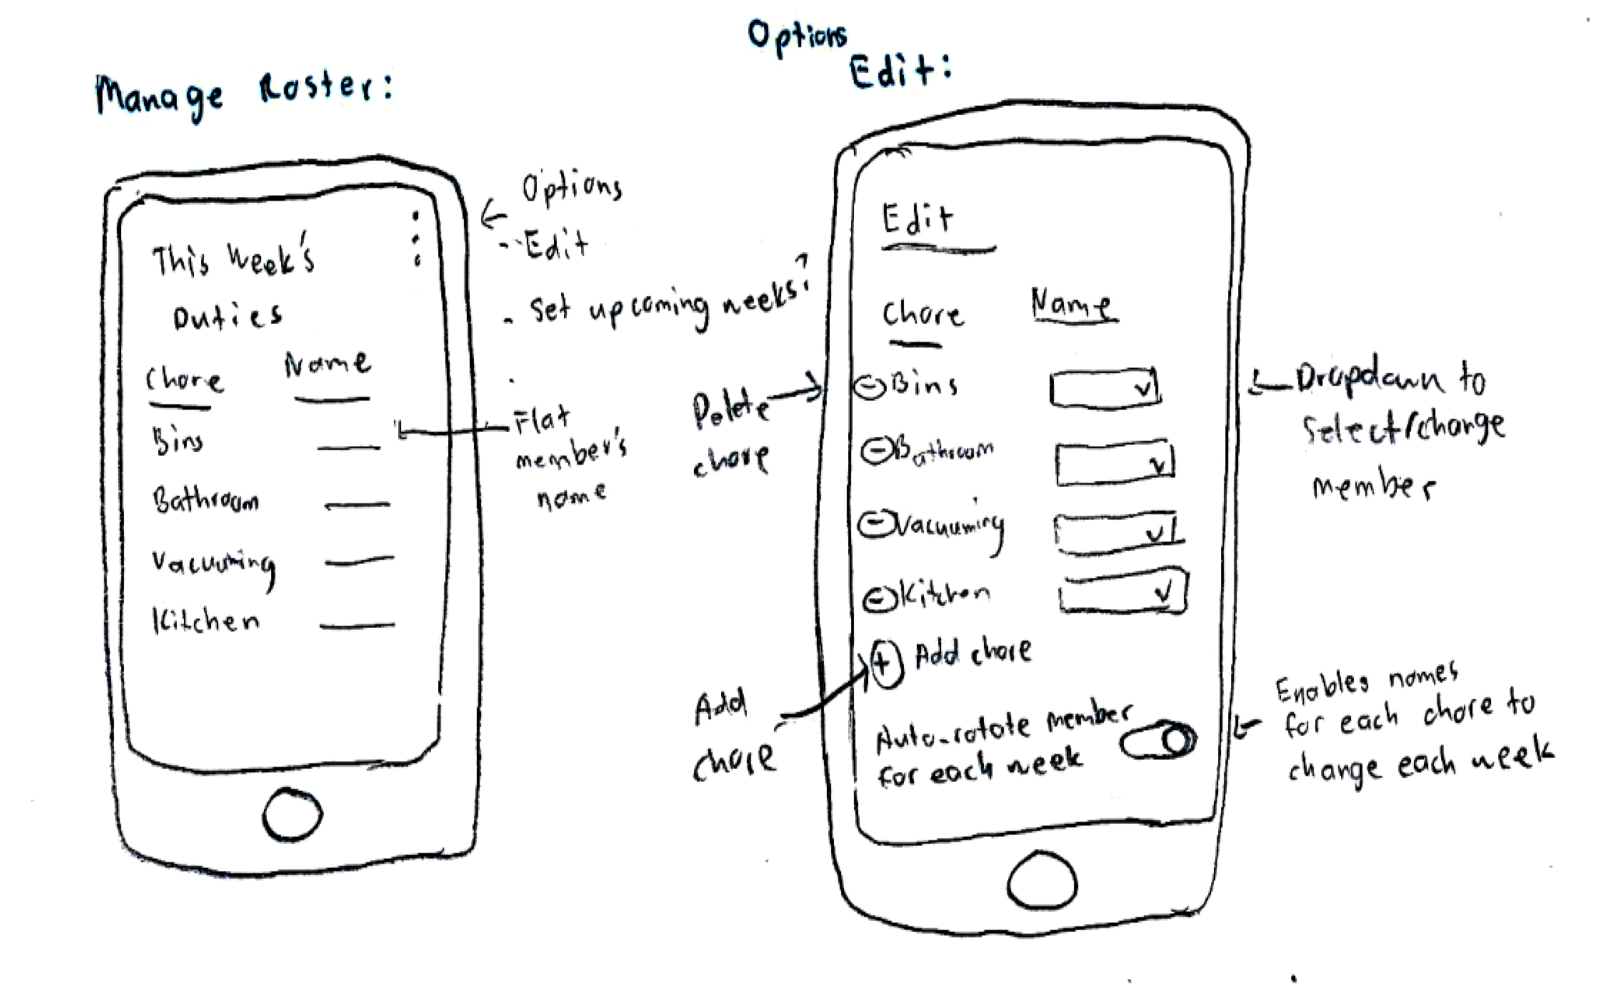 Manage Roster:
This Week's
Duties
Chore Name
Bins
Bathroom
Vacuuming
Kitchen
Options
- Edit
- Set upcoming weeks?
Flat
member's
name
Options
Edit:
Edit
Chore Name
Bins
Bathroom
Vacuuming
Kitchen
+ Add chore
Auto-rotate member
for each week
Delete
chore
Add
chore
Dropdown to
Select/change
member
Enables names
for each chore to
change each week